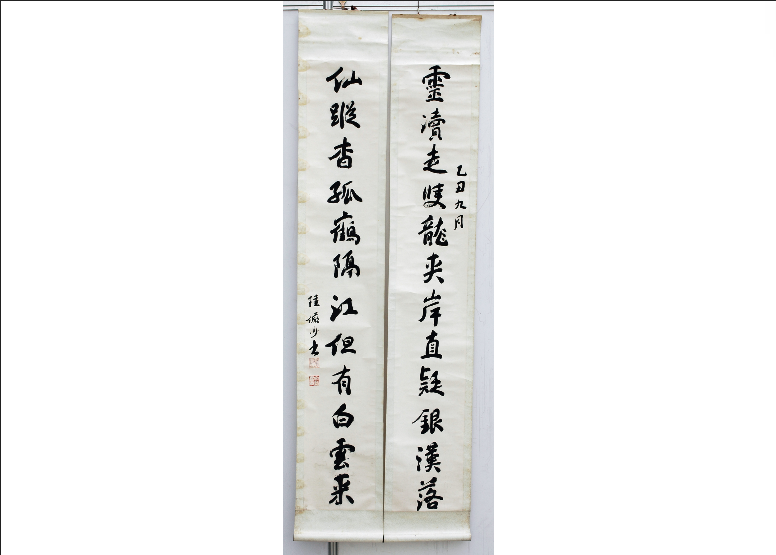 靈瀆走雙龍夾岸直疑銀漢落
乙丑九月
仙蹤杳孤鶴隔江但有白雲來
陸書